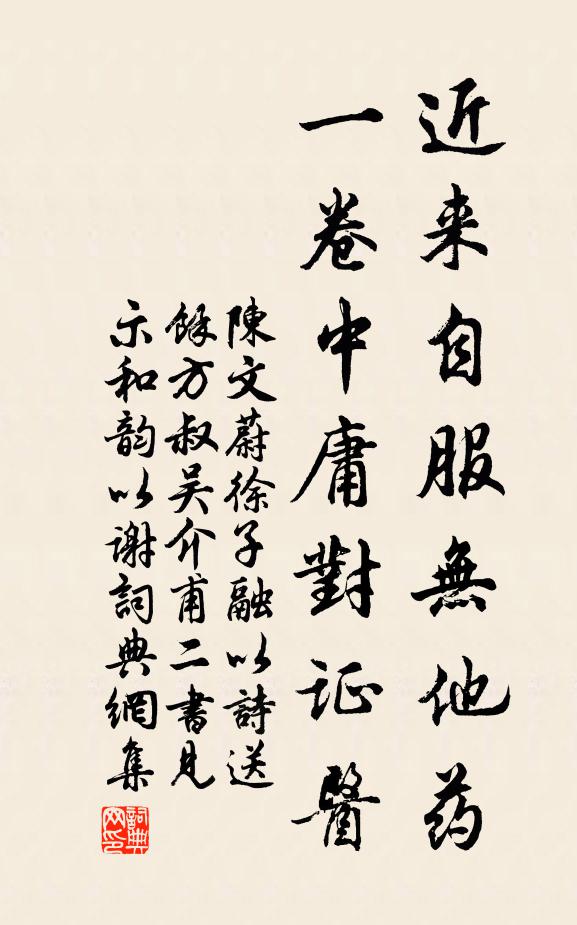 近来自服無他药
一卷中庸對证醫
陳文蔚徐子融以詩送
馀方叔吴介甫二書見
示和韵以谢詞典網集
詞典
网印